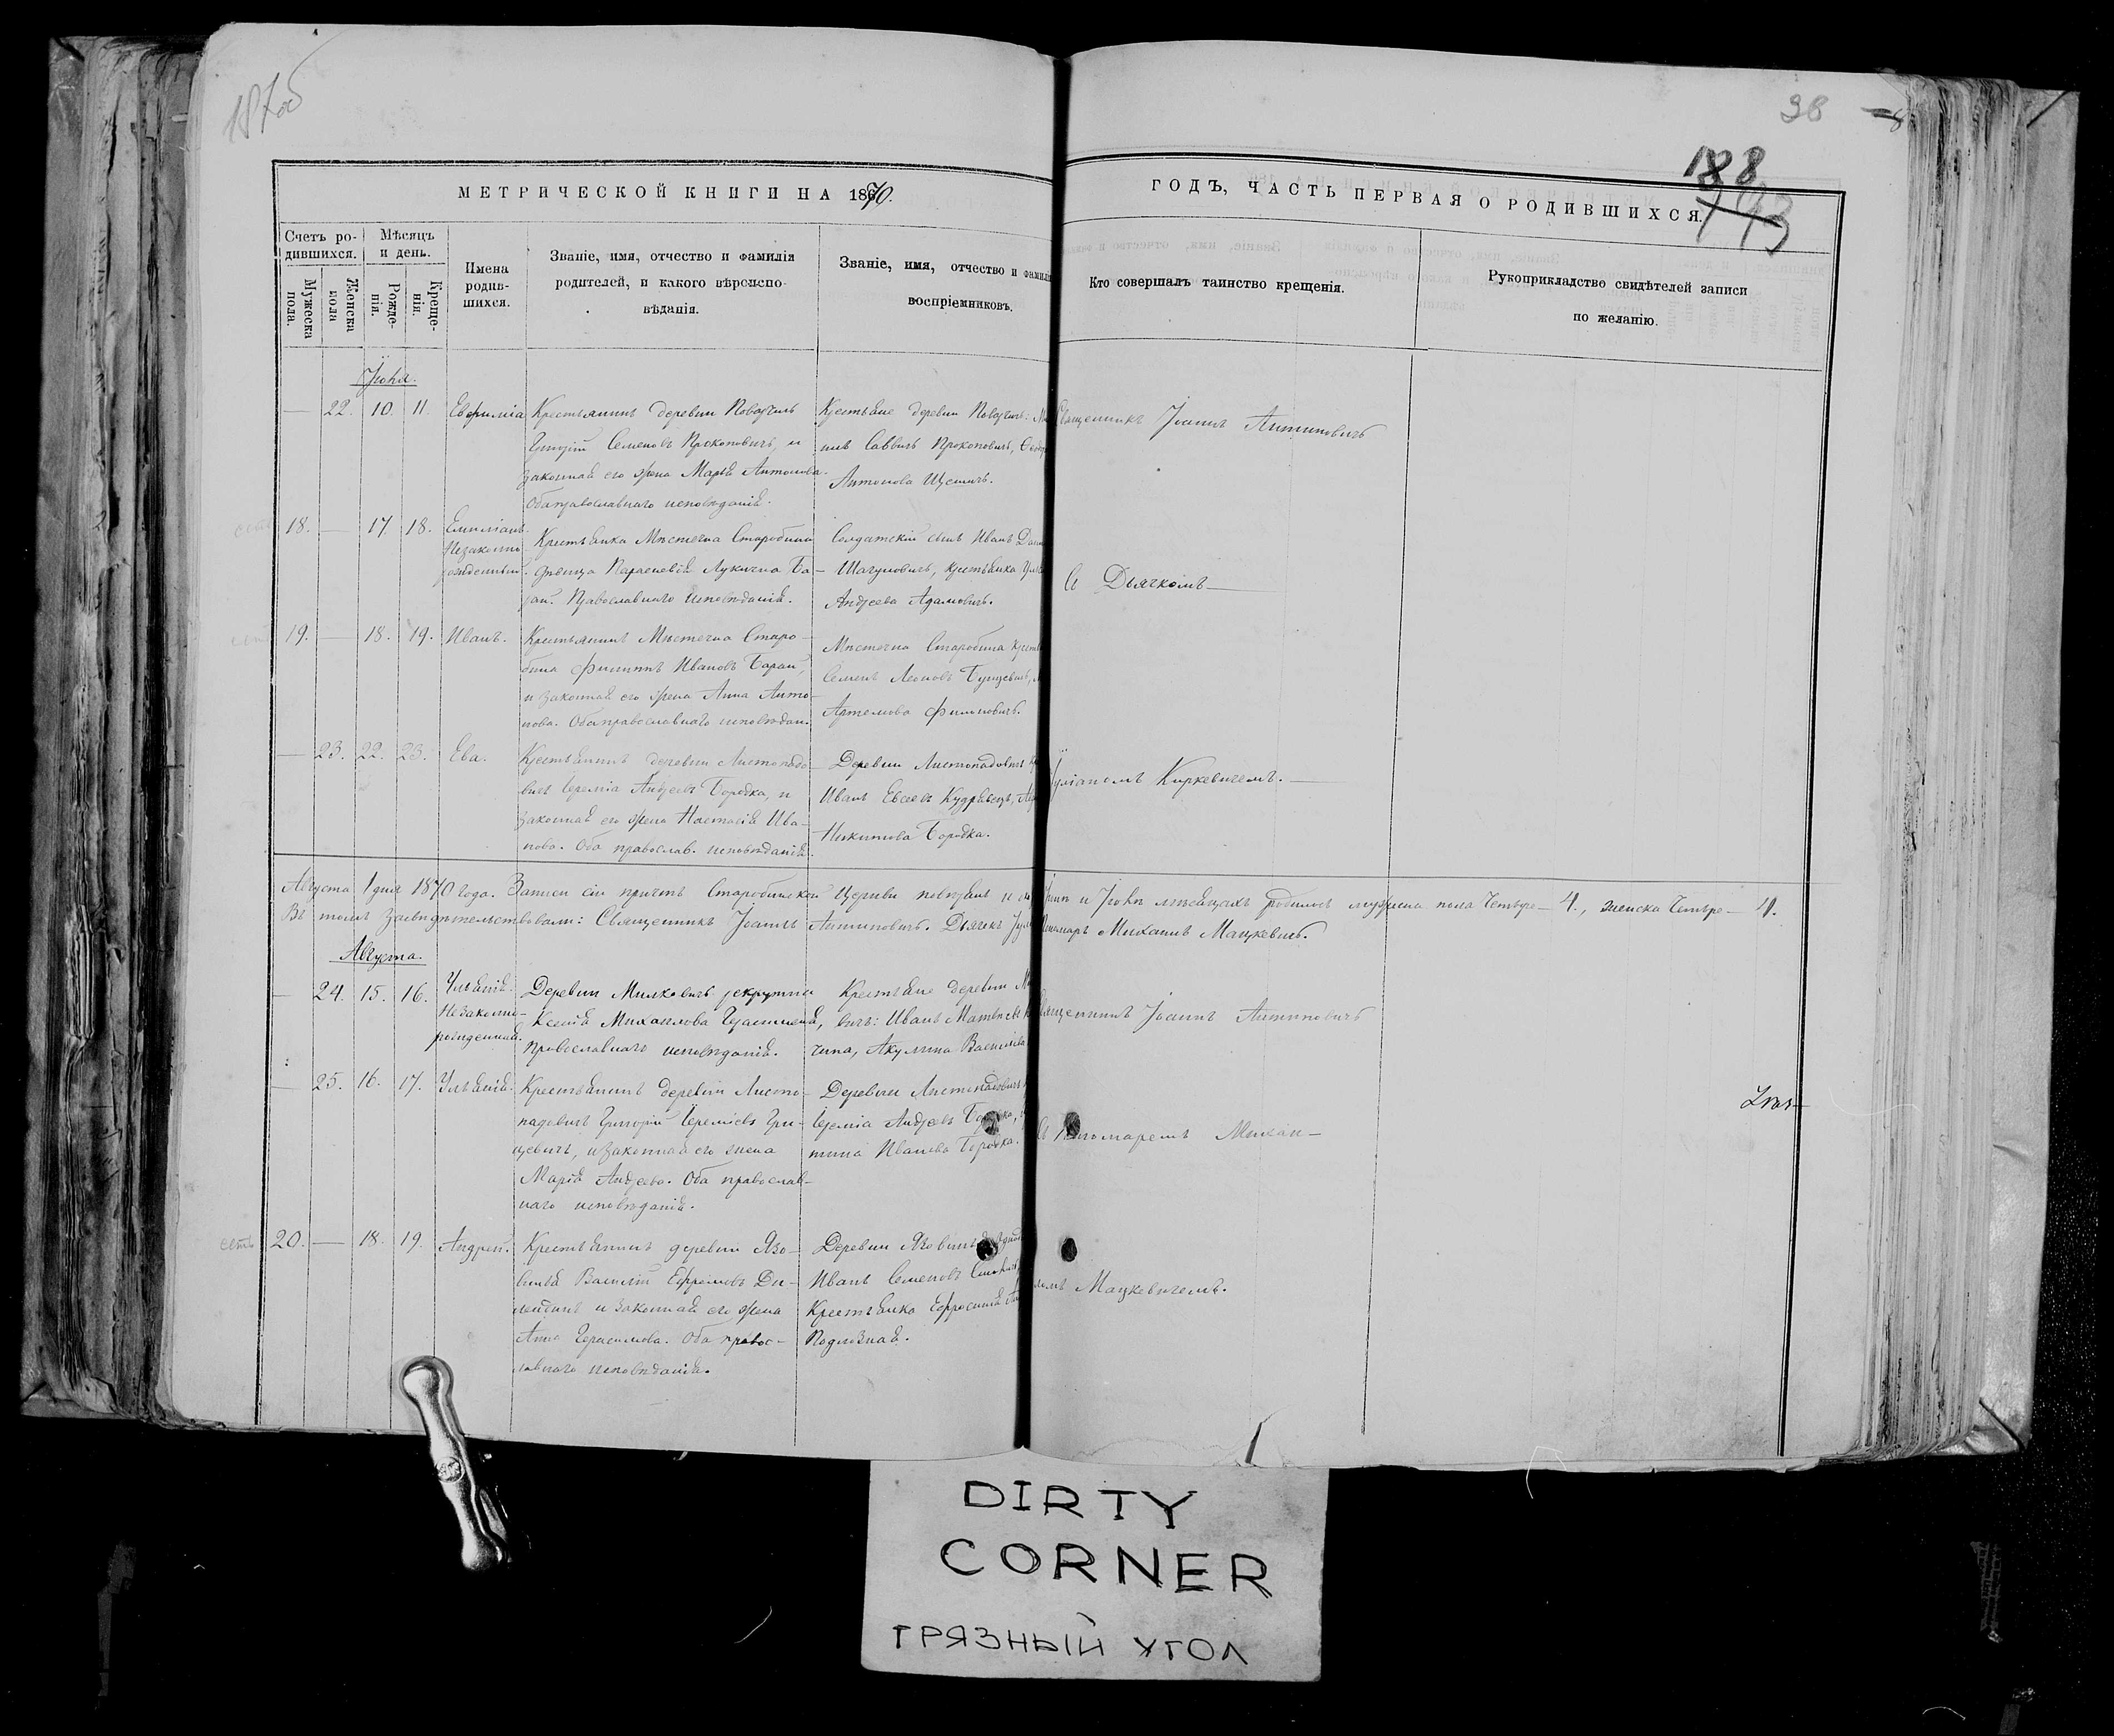 187об
38
188
МЕТРИЧЕСКОЙ КНИГИ НА 1870.
ГОДЪ, ЧАСТЬ ПЕРВАЯ О РОДИВШИХСЯ.
Счетъ ро-
дившихся.
Мѣсяцъ
и день.
Мужеска
пола.
Женска
пола
Рожде-
нія.
Креще-
нія.
Имена
родив-
шихся.
Званіе, имя, отчество и фамилія
родителей, и какого вѣроиспо-
вѣданія.
Званіе, имя, отчество и фамилі
воспріемниковъ.
Кто совершалъ таинство крещенія.
Рукоприкладство свидѣтелей записи
по желанію.
Іюля.
— 22. 10. 11. Евфимія
Крестьянинъ деревни
Григорій Семеновъ Прокоповичъ, и
законная его жена Марья Антонова.
Оба православнаго исповѣданія.
Крестьяне деревни
Саввичъ Прокоповичъ,
Антонова
Священникъ Іоаннъ Антиповичъ
18. — 17. 18. Емиліанъ.
Незаконно-
рожденный.
Крестьянка Мѣстечка Старобина
дѣвица Параскевія Лукична Ба-
ран. Православнаго исповѣданія.
Солдатскій сынъ Иванъ
крестьянка
Андреева Адамовичъ.
Съ Дьячкомъ —
19. — 18. 19. Иванъ.
Крестьянинъ Мѣстечка Старо-
бина Филиппъ Ивановъ Баран,
и законная его жена Анна Анто-
нова. Оба православнаго исповѣдан.
Мѣстечка Старобина
Семенъ Леоновъ
Артемова Филиповичъ.
— 23. 22. 23. Ева.
Крестьянинъ деревни Листопадо-
вичъ Іеремія Андреевъ Бородка, и
законная его жена Настасія Ива-
нова. Оба православ. исповѣданія.
Деревни Листопадовичъ
Иванъ Евсеевъ Кудравецъ,
Никитова Бородка.
Юліаномъ Киркевичемъ. —
Августа 1 дня 1870 года. Записи сіи причтъ Старобинской Церкви повѣрялъ и Іюнѣ и Іюлѣ мѣсяцахъ родилось мужеска пола Четыре — 4., женска Четыре — 4.
Въ томъ засвидѣтельствовали: Священникъ Іоаннъ Антиповичъ. Дьячекъ Пономарь Михаилъ Мацкевичъ.
Августа.
— 24. 15. 16. Ульянія.
Незаконно-
рожденная.
Деревни Милковичъ рекрутка
Ксенія Михаилова
Православнаго исповѣданія.
Крестьяне деревни
вичъ: Иванъ Матвѣевъ
Акулина Василіева
Священникъ Іоаннъ Антиповичъ
— 25. 16. 17. Ульянія.
Крестьянинъ деревни Листо-
падовичъ Григорій Іереміевъ Гри-
цевичъ, и законная его жена
Марія Андреева. Оба православ-
наго исповѣданія.
Деревни Листопадовичъ
Іеремія Андреевъ Бородка,
Иванова Бородка.
Съ Пономаремъ Михаи-
20. — 18. 19. Андрей.
Крестьянинъ деревни Язо-
Василій Ефремовъ
и законная его жена
Анна Герасимова. Оба правос-
лавнаго исповѣданія.
Деревни
Иванъ Семеновъ
Крестьянка Ефросинія
Подлозная.
ломъ Мацкевичемъ.
DIRTY
CORNER
ГРЯЗНЫЙ УГОЛ